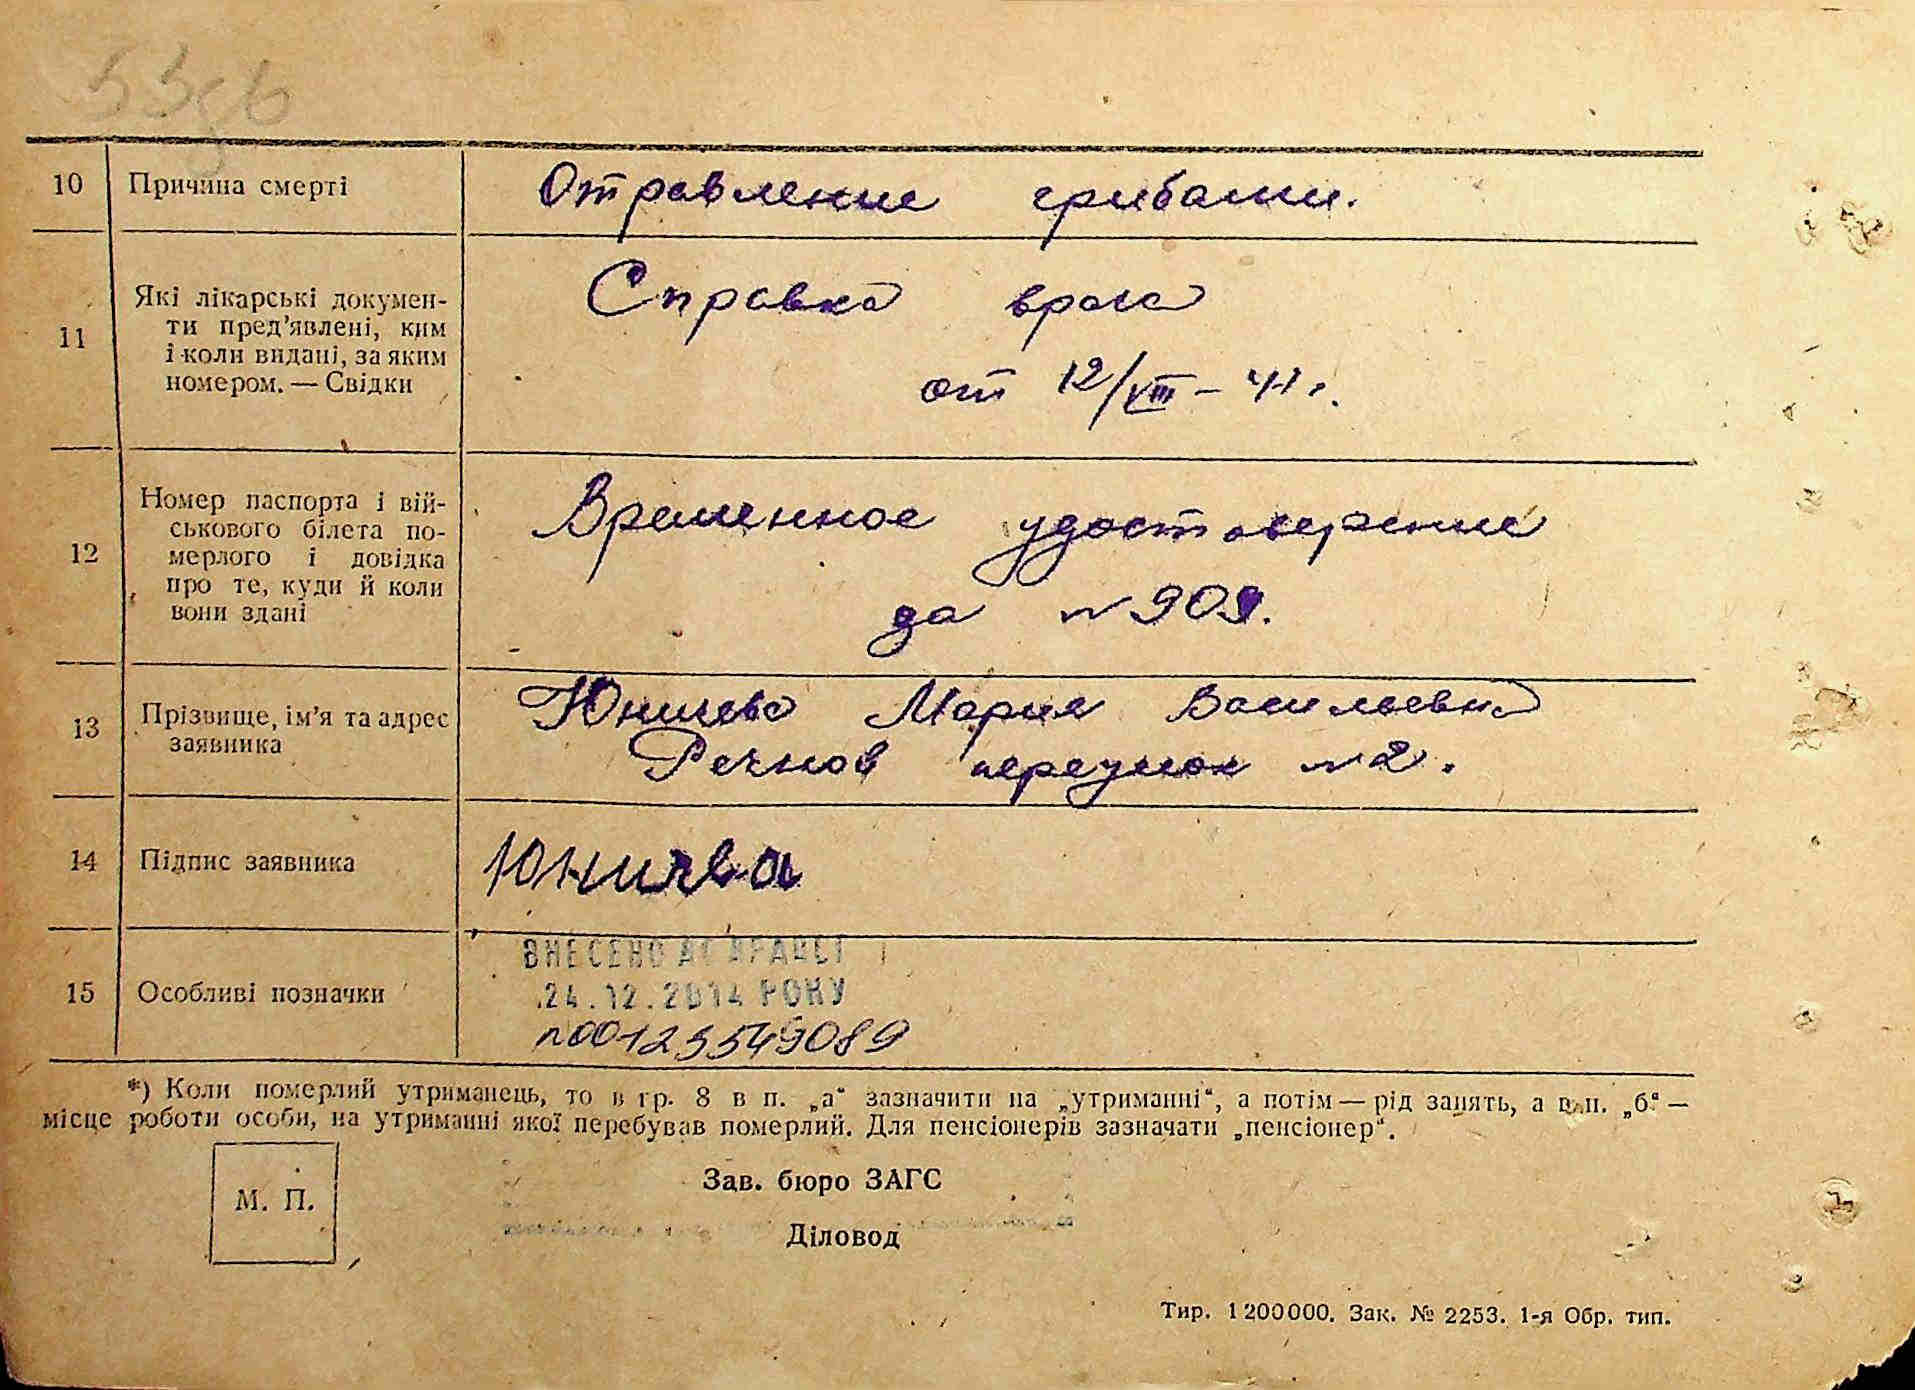 10 Причина смерті Отравление грибами.
11 Які лікарські докумен-
ти пред’явлені, ким
і коли видані, за яким
номером. — Свідки
Справка врача
от 12/VIII – 41 г.
12 Номер паспорта і вій-
ськового білета по-
мерлого і довідка
про те, куди й коли
вони здані
Временное удостоверение
за № 909.
13 Прізвище, ім’я та адрес
заявника
Юничева Мария Васильевна
Речнов переулок № 2.
14 Підпис заявника Юничева
15 Особливі позначки
ВНЕСЕНО ДО ДРАЦСГ
24.12.2014 РОКУ
n00123549089
*) Коли померлий утриманець, то в гр. 8 в п. „а“ зазначити на „утриманні“, а потім — рід занять, а в п. „б“ —
місце роботи особи, на утриманні якої перебував померлий. Для пенсіонерів зазначати „пенсіонер“.
М. П.
Зав. бюро ЗАГС
Діловод
Тир. 1200000. Зак. № 2253. 1-я Обр. тип.